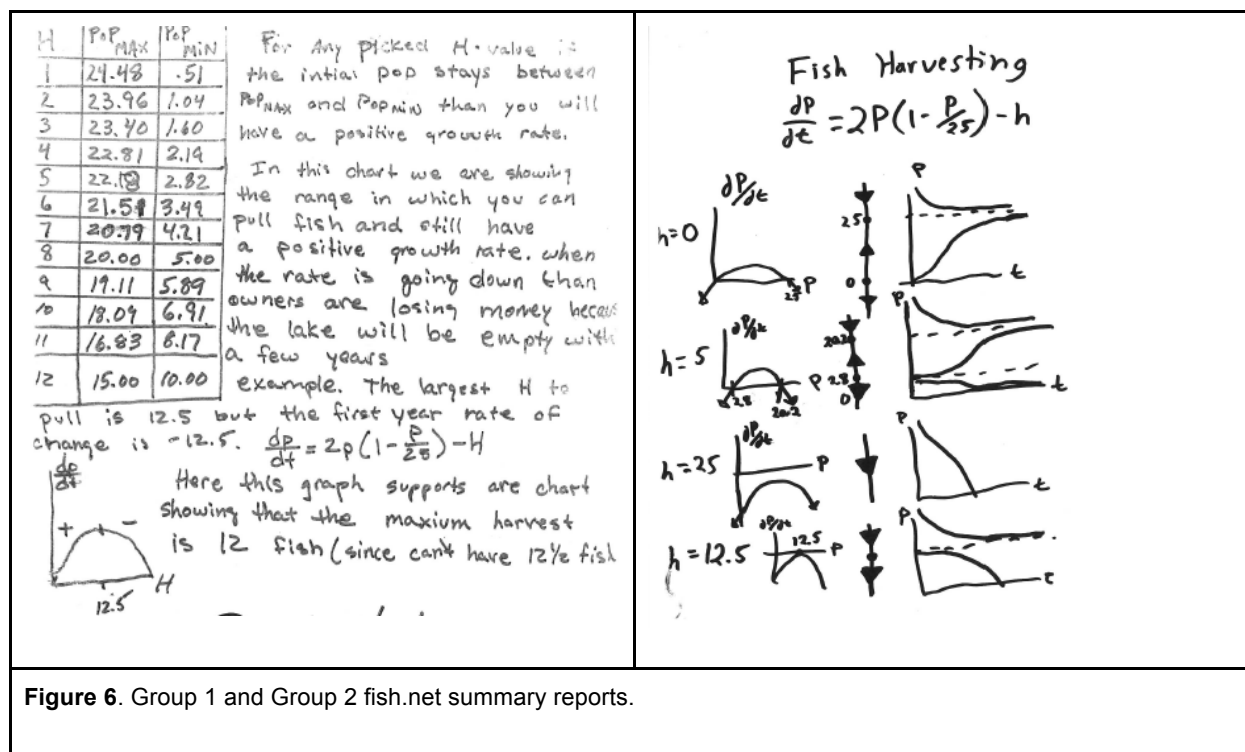 H PoP MAX PoP MiN
1 24.48 .51
2 23.96 1.04
3 23.40 1.60
4 22.81 2.19
5 22.18 2.82
6 21.51 3.49
7 20.79 4.21
8 20.00 5.00
9 19.11 5.89
10 18.09 6.91
11 16.83 8.17
12 15.00 10.00
For Any picked H-value is
the intial pop stays between
PoP MAX and Pop MiN than you will
have a positive growth rate.
In this chart we are showing
the range in which you can
pull fish and still have
a positive growth rate. when
the rate is going down than
owners are losing money becau
the lake will be empty with
a few years
example. The largest H to
pull is 12.5 but the first year rate of
change is -12.5. dp/dt = 2p(1-p/25)-H
Here this graph supports are chart
showing that the maxium harvest
is 12 fish (since can't have 12½ fish
dp/dt
+ -
12.5 H
Fish Harvesting
dP/dt = 2P(1-P/25)-h
h=0 dP/dt P 25
25 0
P t
h=5 dP/dt P 2.8 20.2
20.2 2.8 0
P t
h=25 dP/dt P
P t
h=12.5 dP/dt 12.5 P
P t
Figure 6. Group 1 and Group 2 fish.net summary reports.